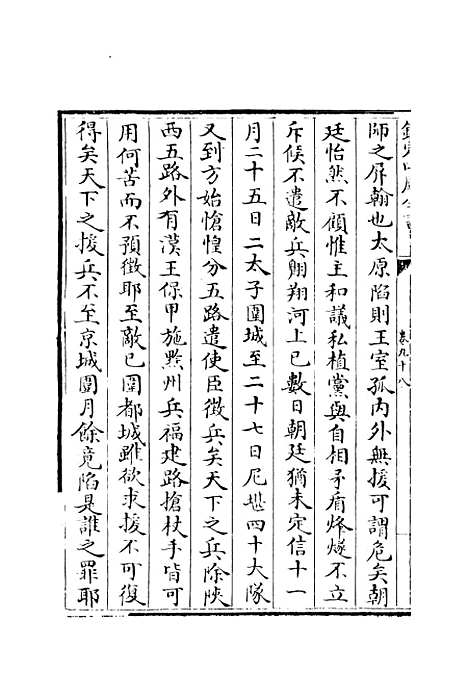 欽定四庫全書
卷九十八
師之屏翰也太原陷則王室孤内外無援可謂危矣朝
廷恬然不顧惟主和議私植黨與自相矛盾烽燧不立
斥候不遣敵兵翺翔河上已數日朝廷猶未定信十一
月二十五日二太子圍城至二十七日尼堪四十大隊
又到方始愴惶分五路遣使臣徵兵矣天下之兵除陜
西五路外有漢王保甲施黔州兵福建路搶杖手皆可
用何苦而不預徵耶至敵已圍都城雖欲求援不可復
得矣天下之援兵不至京城圍月餘竟陷是誰之罪耶